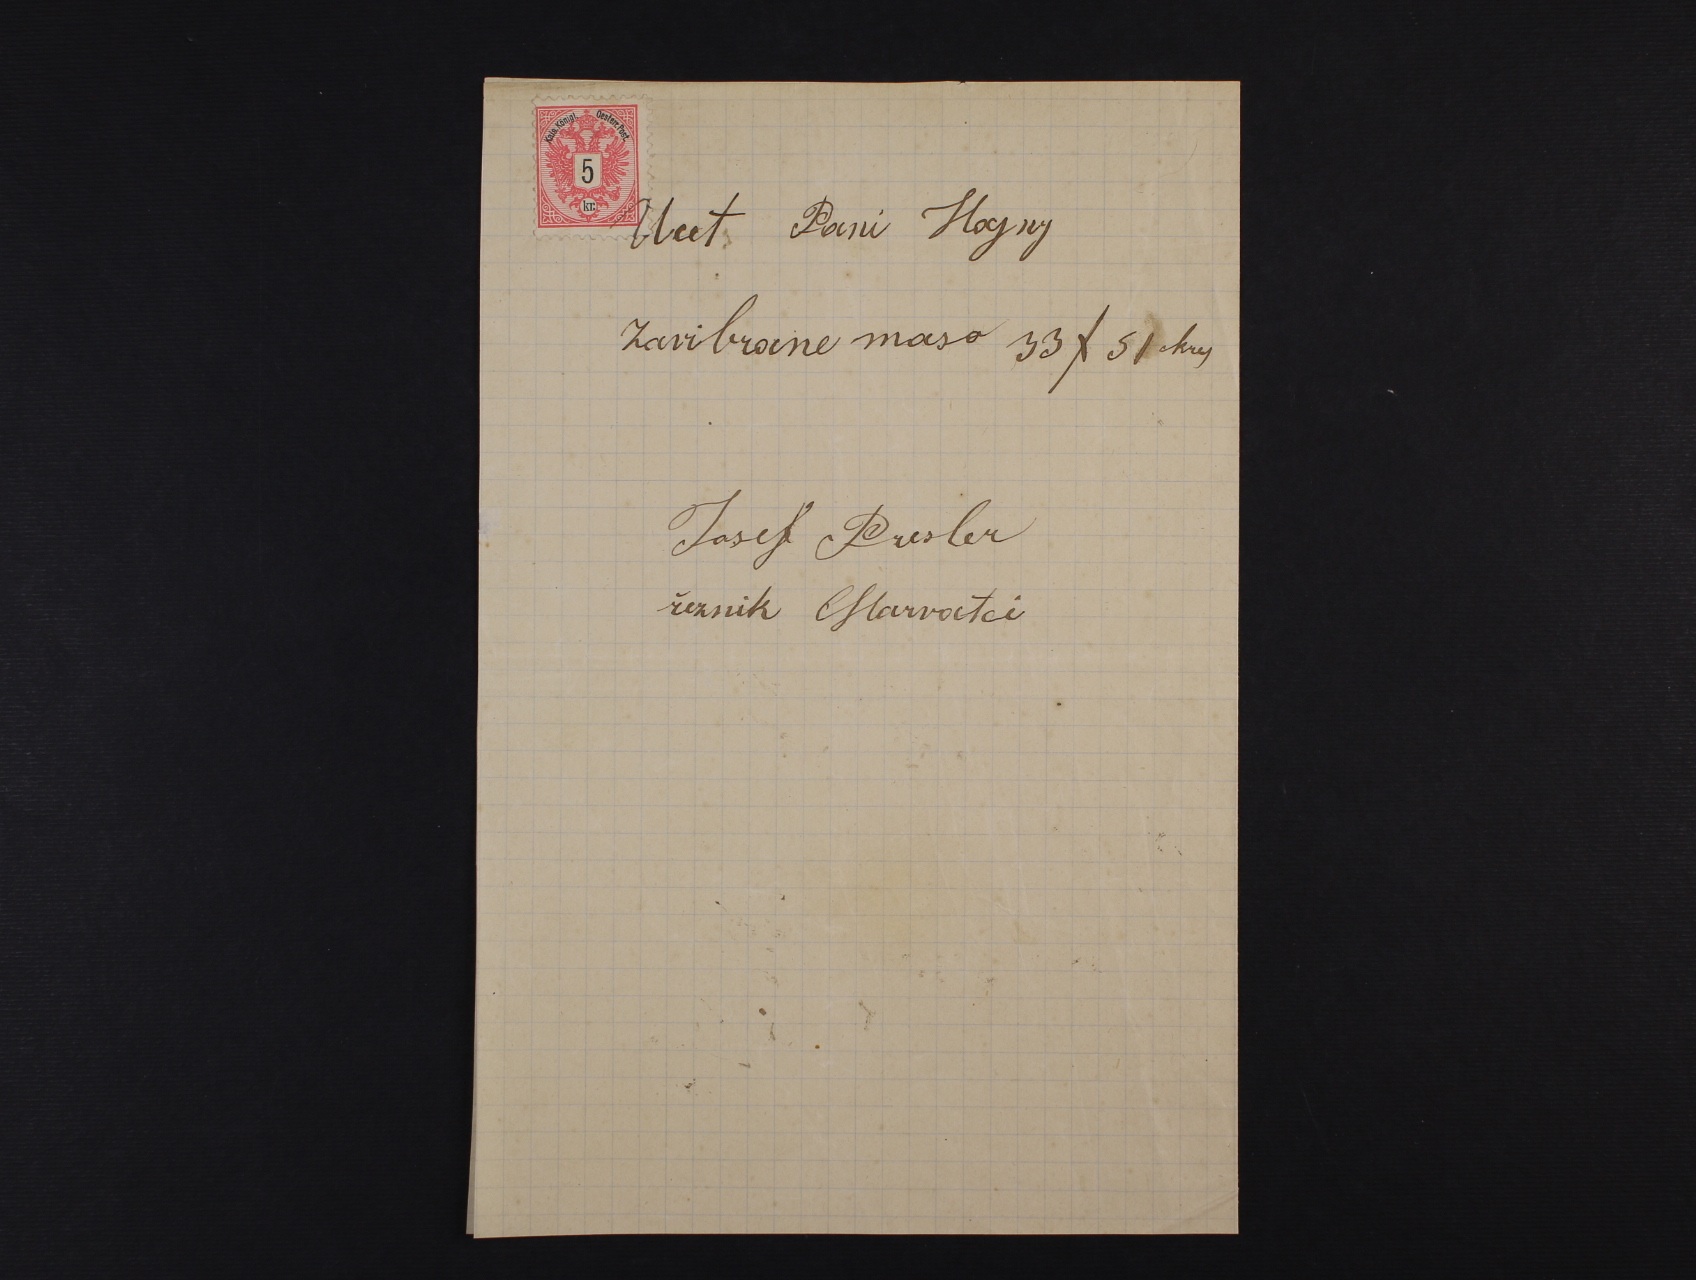 Kais. Königl. Oesterr. Post.
5
kr.
Ucet Pani Hogny
Zavibrane maso 33 f 51 kry
Josef Presler
řeznik Charvatci